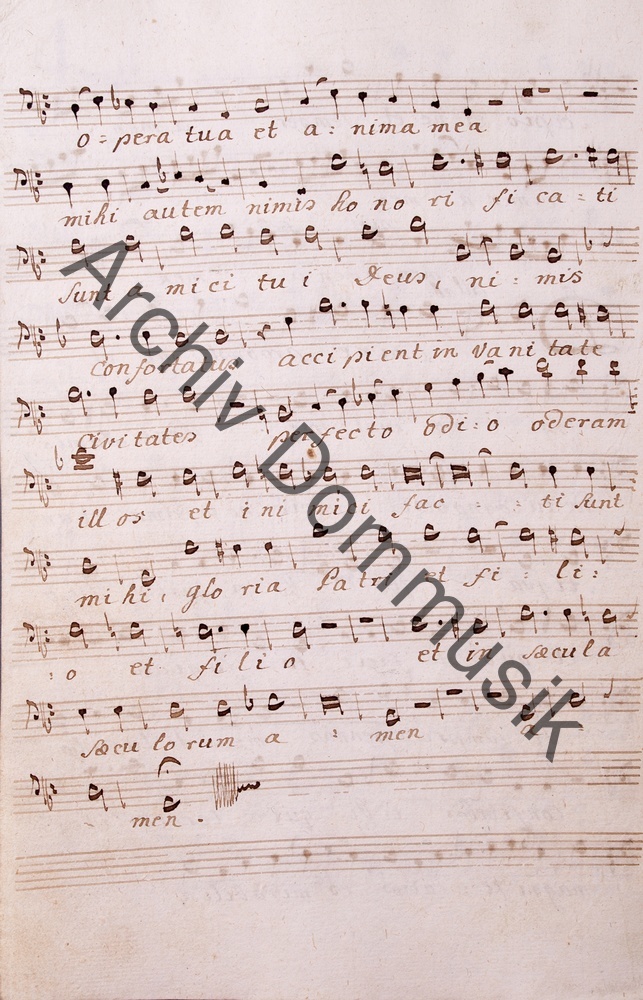 o = pera tua et a : nima mea
mihi autem nimis ho no ri fi ca = ti
sunt a mi ci tu i Deus, ni : mis
Confortatus accipient in vanitate
Civitates perfecto odi : o oderam
illos et inimici fac - - ti sunt
mihi, gloria Patri et fi : li :
: o et filio et in sæcula
sæculorum a : men a
- men .
Archiv Dommusik